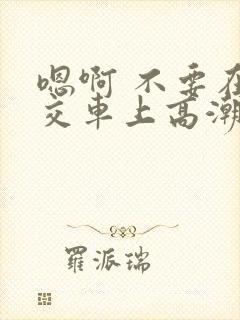 嗯啊 不要在
交車上高潮
羅派瑞